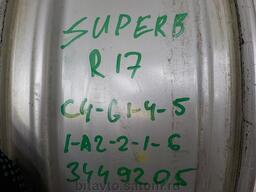 SUPERB
R 17
C4-G1-4-5
1-A2-2-1-6
3449205
bilavto.satom.ru